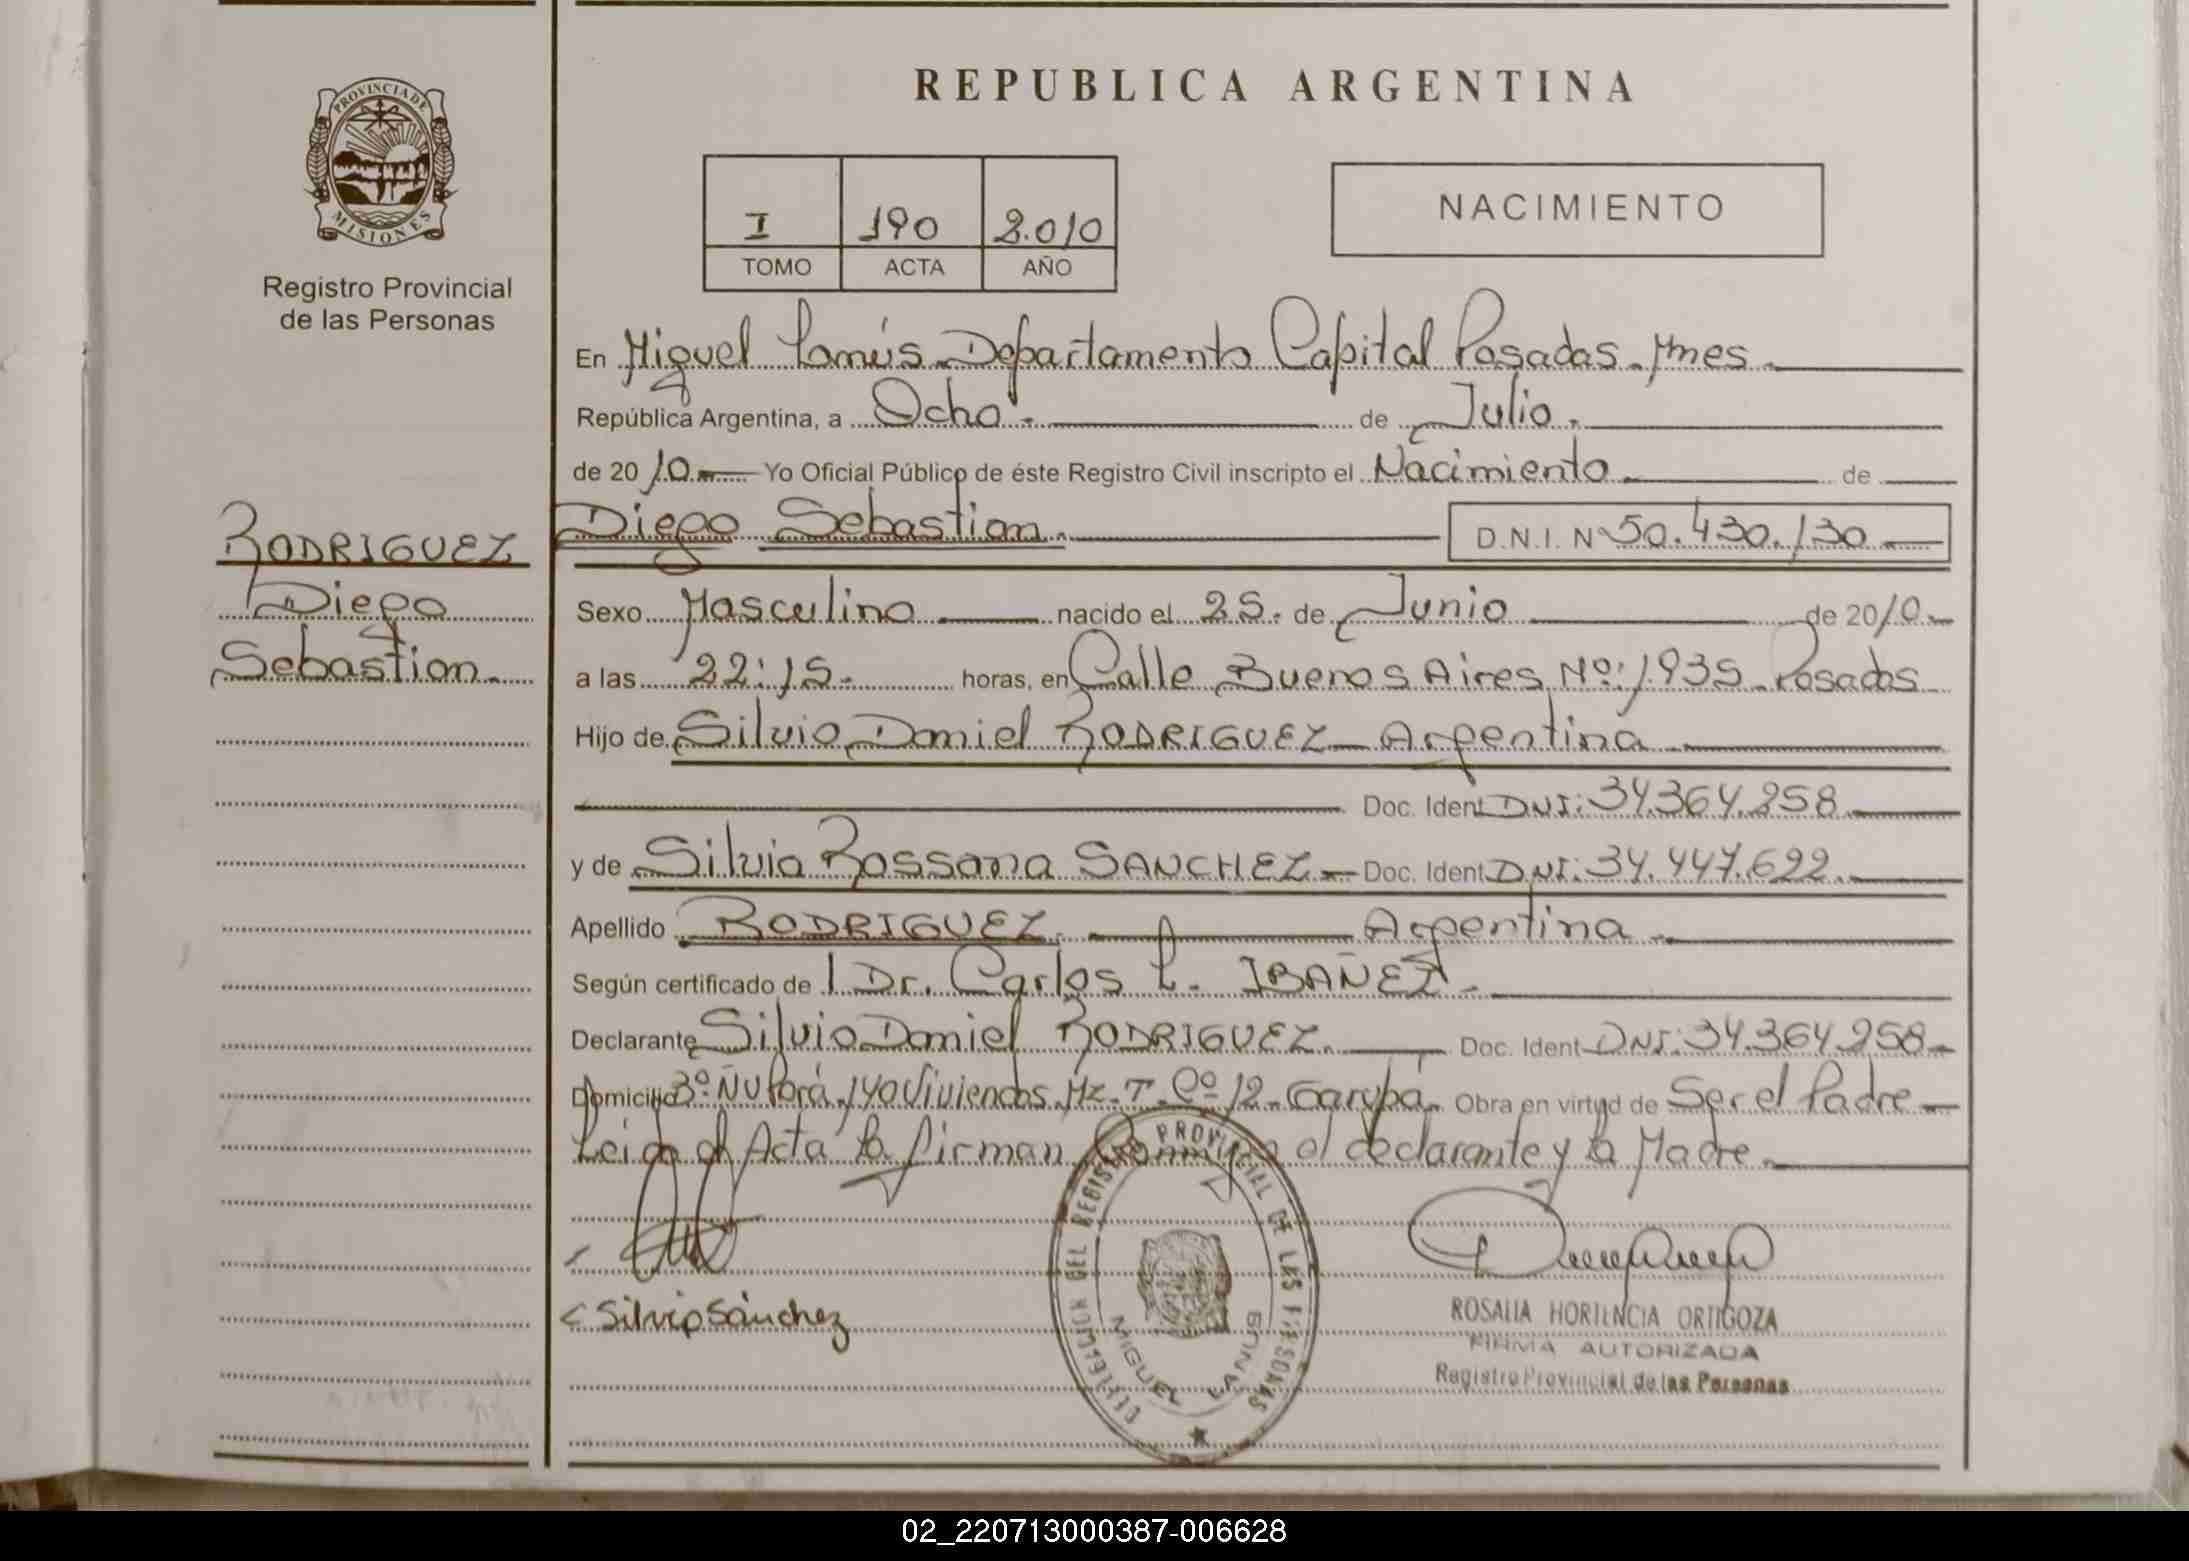 PROVINCIA DE
MISIONES
Registro Provincial
de las Personas
RODRIGUEZ
Diego
Sebastian.
REPUBLICA ARGENTINA
I 190 2.010
TOMO ACTA AÑO
NACIMIENTO
En Miguel Lanús Departamento Capital Posadas. Mnes
República Argentina, a Ocho. de Julio.
de 20 10 Yo Oficial Público de éste Registro Civil inscripto el Nacimiento de
Diego Sebastian. D.N.I. Nº 50.430.130.
Sexo Masculino nacido el 25. de Junio de 2010
a las 22:15. horas, en Calle Buenos Aires Nº: 1935 Posadas
Hijo de Silvio Daniel RODRIGUEZ Argentina
Doc. Ident DNI: 34.364.258.
y de Silvia Rossana SANCHEZ Doc. Ident DNI: 34.447.622.
Apellido RODRIGUEZ. Argentina
Según certificado de l Dr. Carlos L. IBAÑEZ.
Declarante Silvio Daniel RODRIGUEZ. Doc. Ident DNI: 34.364.258
Domicilio Bº. Ñu Porá 140 Viviendas Mz. T. Cº 12. Garupá. Obra en virtud de Ser el Padre
Leida el Acta la firman Conmigo el declarante y la Madre
Silvia Sánchez
DELEGACION DEL REGISTRO PROVINCIAL DE LAS PERSONAS
MIGUEL LANUS
ROSALIA HORTENCIA ORTIGOZA
FIRMA AUTORIZADA
Registro Provincial de las Personas
02_220713000387-006628